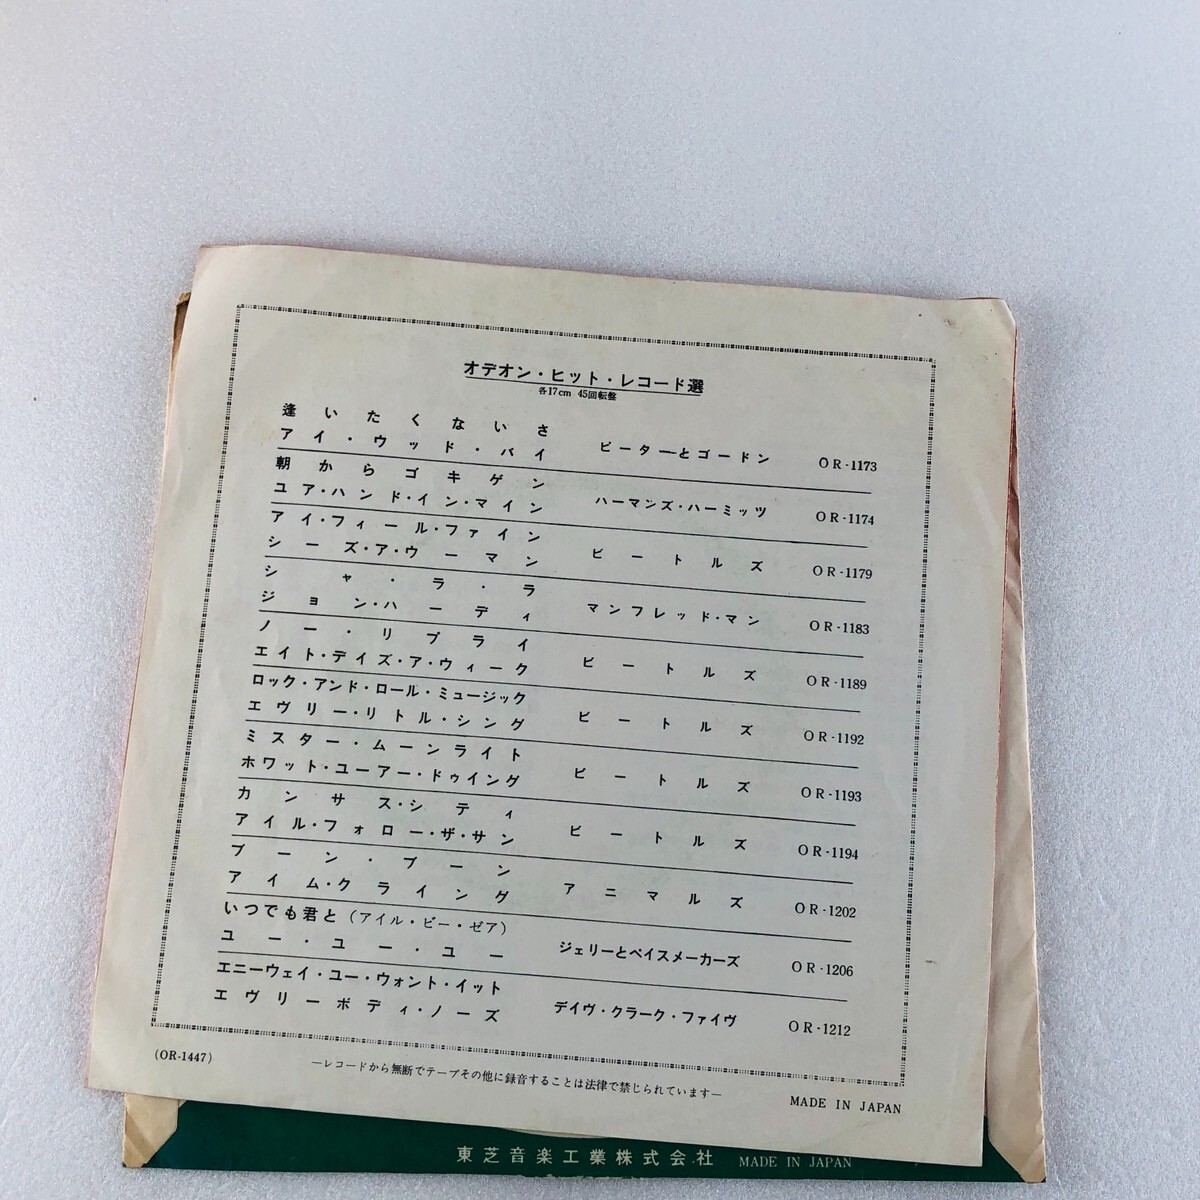 オデオン・ヒット・レコード選
各17cm 45回転盤
逢いたくないさ
アイ・ウッド・バイ
ピーターとゴードン OR-1173
朝からゴキゲン
ユア・ハンド・イン・マイン
ハーマンズ・ハーミッツ OR-1174
アイ・フィール・ファイン
シーズ・ア・ウーマン
ビートルズ OR-1179
シャ・ラ・ラ
ジョン・ハーディ
マンフレッド・マン OR-1183
ノー・リプライ
エイト・デイズ・ア・ウィーク
ビートルズ OR-1189
ロック・アンド・ロール・ミュージック
エヴリー・リトル・シング
ビートルズ OR-1192
ミスター・ムーンライト
ホワット・ユーアー・ドゥイング
ビートルズ OR-1193
カンサス・シティ
アイル・フォロー・ザ・サン
ビートルズ OR-1194
ブーン・ブーン
アイム・クライング
アニマルズ OR-1202
いつでも君と（アイル・ビー・ゼア）
ユー・ユー・ユー
ジェリーとペイスメーカーズ OR-1206
エニーウェイ・ユー・ウォント・イット
エヴリーボディ・ノーズ
デイヴ・クラーク・ファイヴ OR-1212
(OR-1447)
—レコードから無断でテープその他に録音することは法律で禁じられています—
MADE IN JAPAN
東芝音楽工業株式会社 MADE IN JAPAN